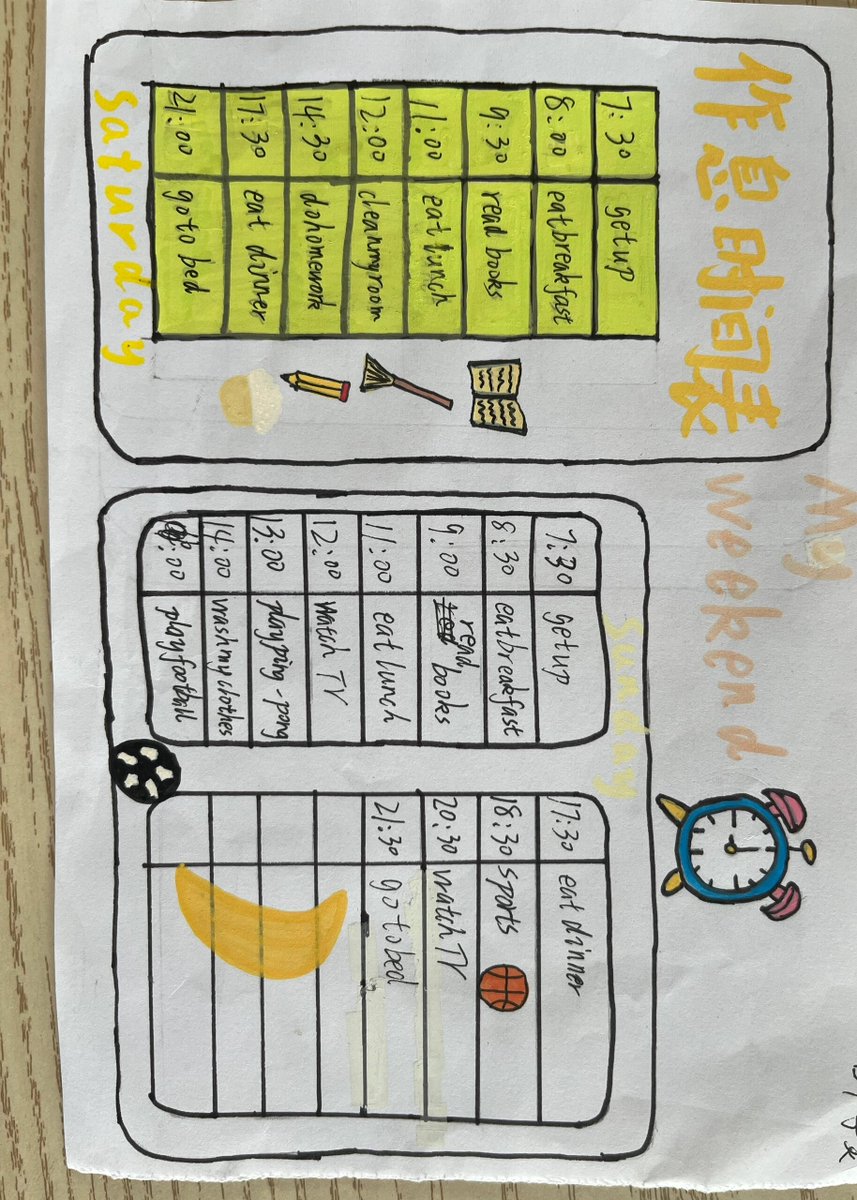 作息时间表
My
weekend
7:30 getup
8:00 eatbreakfast
9:30 read books
11:00 eat lunch
12:00 cleanmyroom
14:30 dohomework
17:30 eat dinner
21:00 goto bed
saturday
sunday
7:30 getup
8:30 eatbreakfast
9:00 read books
11:00 eat lunch
12:00 Watch TV
13:00 playping-pong
14:00 washmyclothes
:00 playfootball
17:30 eat dinner
18:30 sports
20:30 watch TV
21:30 go to bed